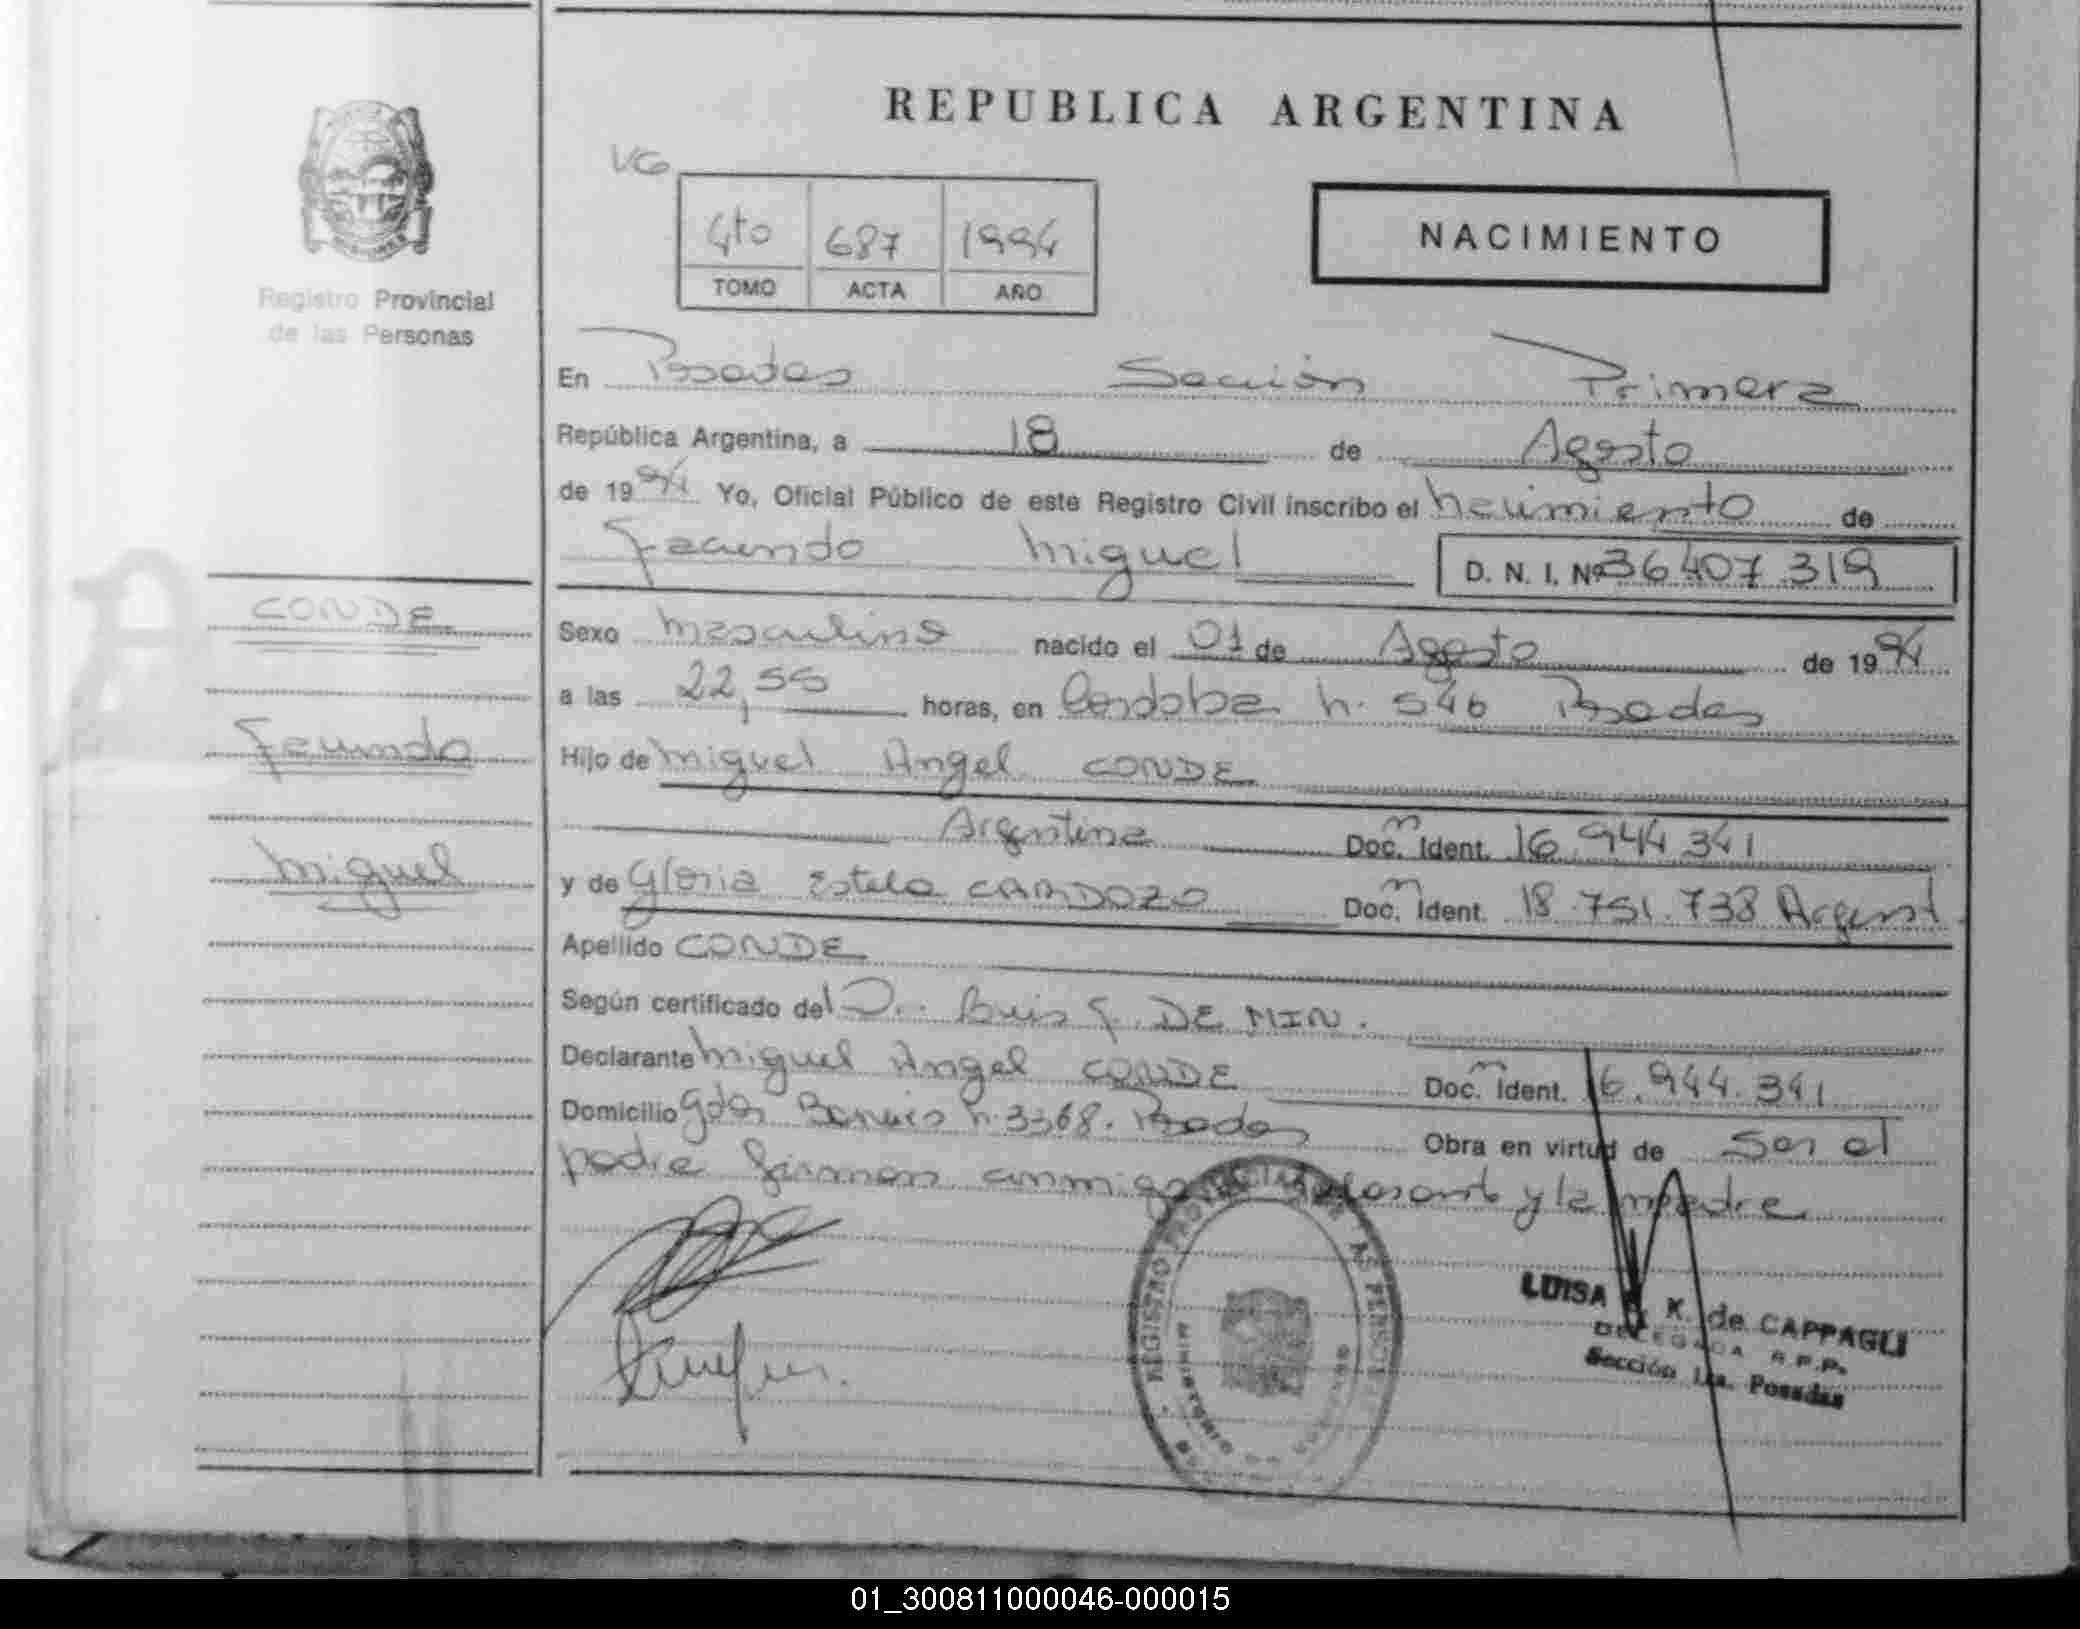 REPUBLICA ARGENTINA
VG
4to 687 1994
TOMO ACTA AÑO
NACIMIENTO
Registro Provincial
de las Personas
En Posadas Sección Primera
República Argentina, a 18 de Agosto
de 1994 Yo, Oficial Público de este Registro Civil inscribo el nacimiento de
Facundo Miguel D. N. I. Nº 36.407.319
CONDE
Facundo
Miguel
Sexo masculino nacido el 01 de Agosto de 1994
a las 22,55 horas, en Cordoba n. 546 Posadas
Hijo de Miguel Angel CONDE
Argentina Doc. Ident. 16.944.341
y de Gloria Estela CARDOZO Doc. Ident. 18.751.738 Argent.
Apellido CONDE
Según certificado del D. Luis F. DE MIN.
Declarante Miguel Angel CONDE Doc. Ident. 16.944.341
Domicilio n. 3368. Posadas Obra en virtud de ser el
padre firman y la madre
REGISTRO PROVINCIAL DE LAS PERSONAS
LUISA K. de CAPPAGLI
DELEGADA R.P.P.
Sección 1ra. Posadas
01_300811000046-000015